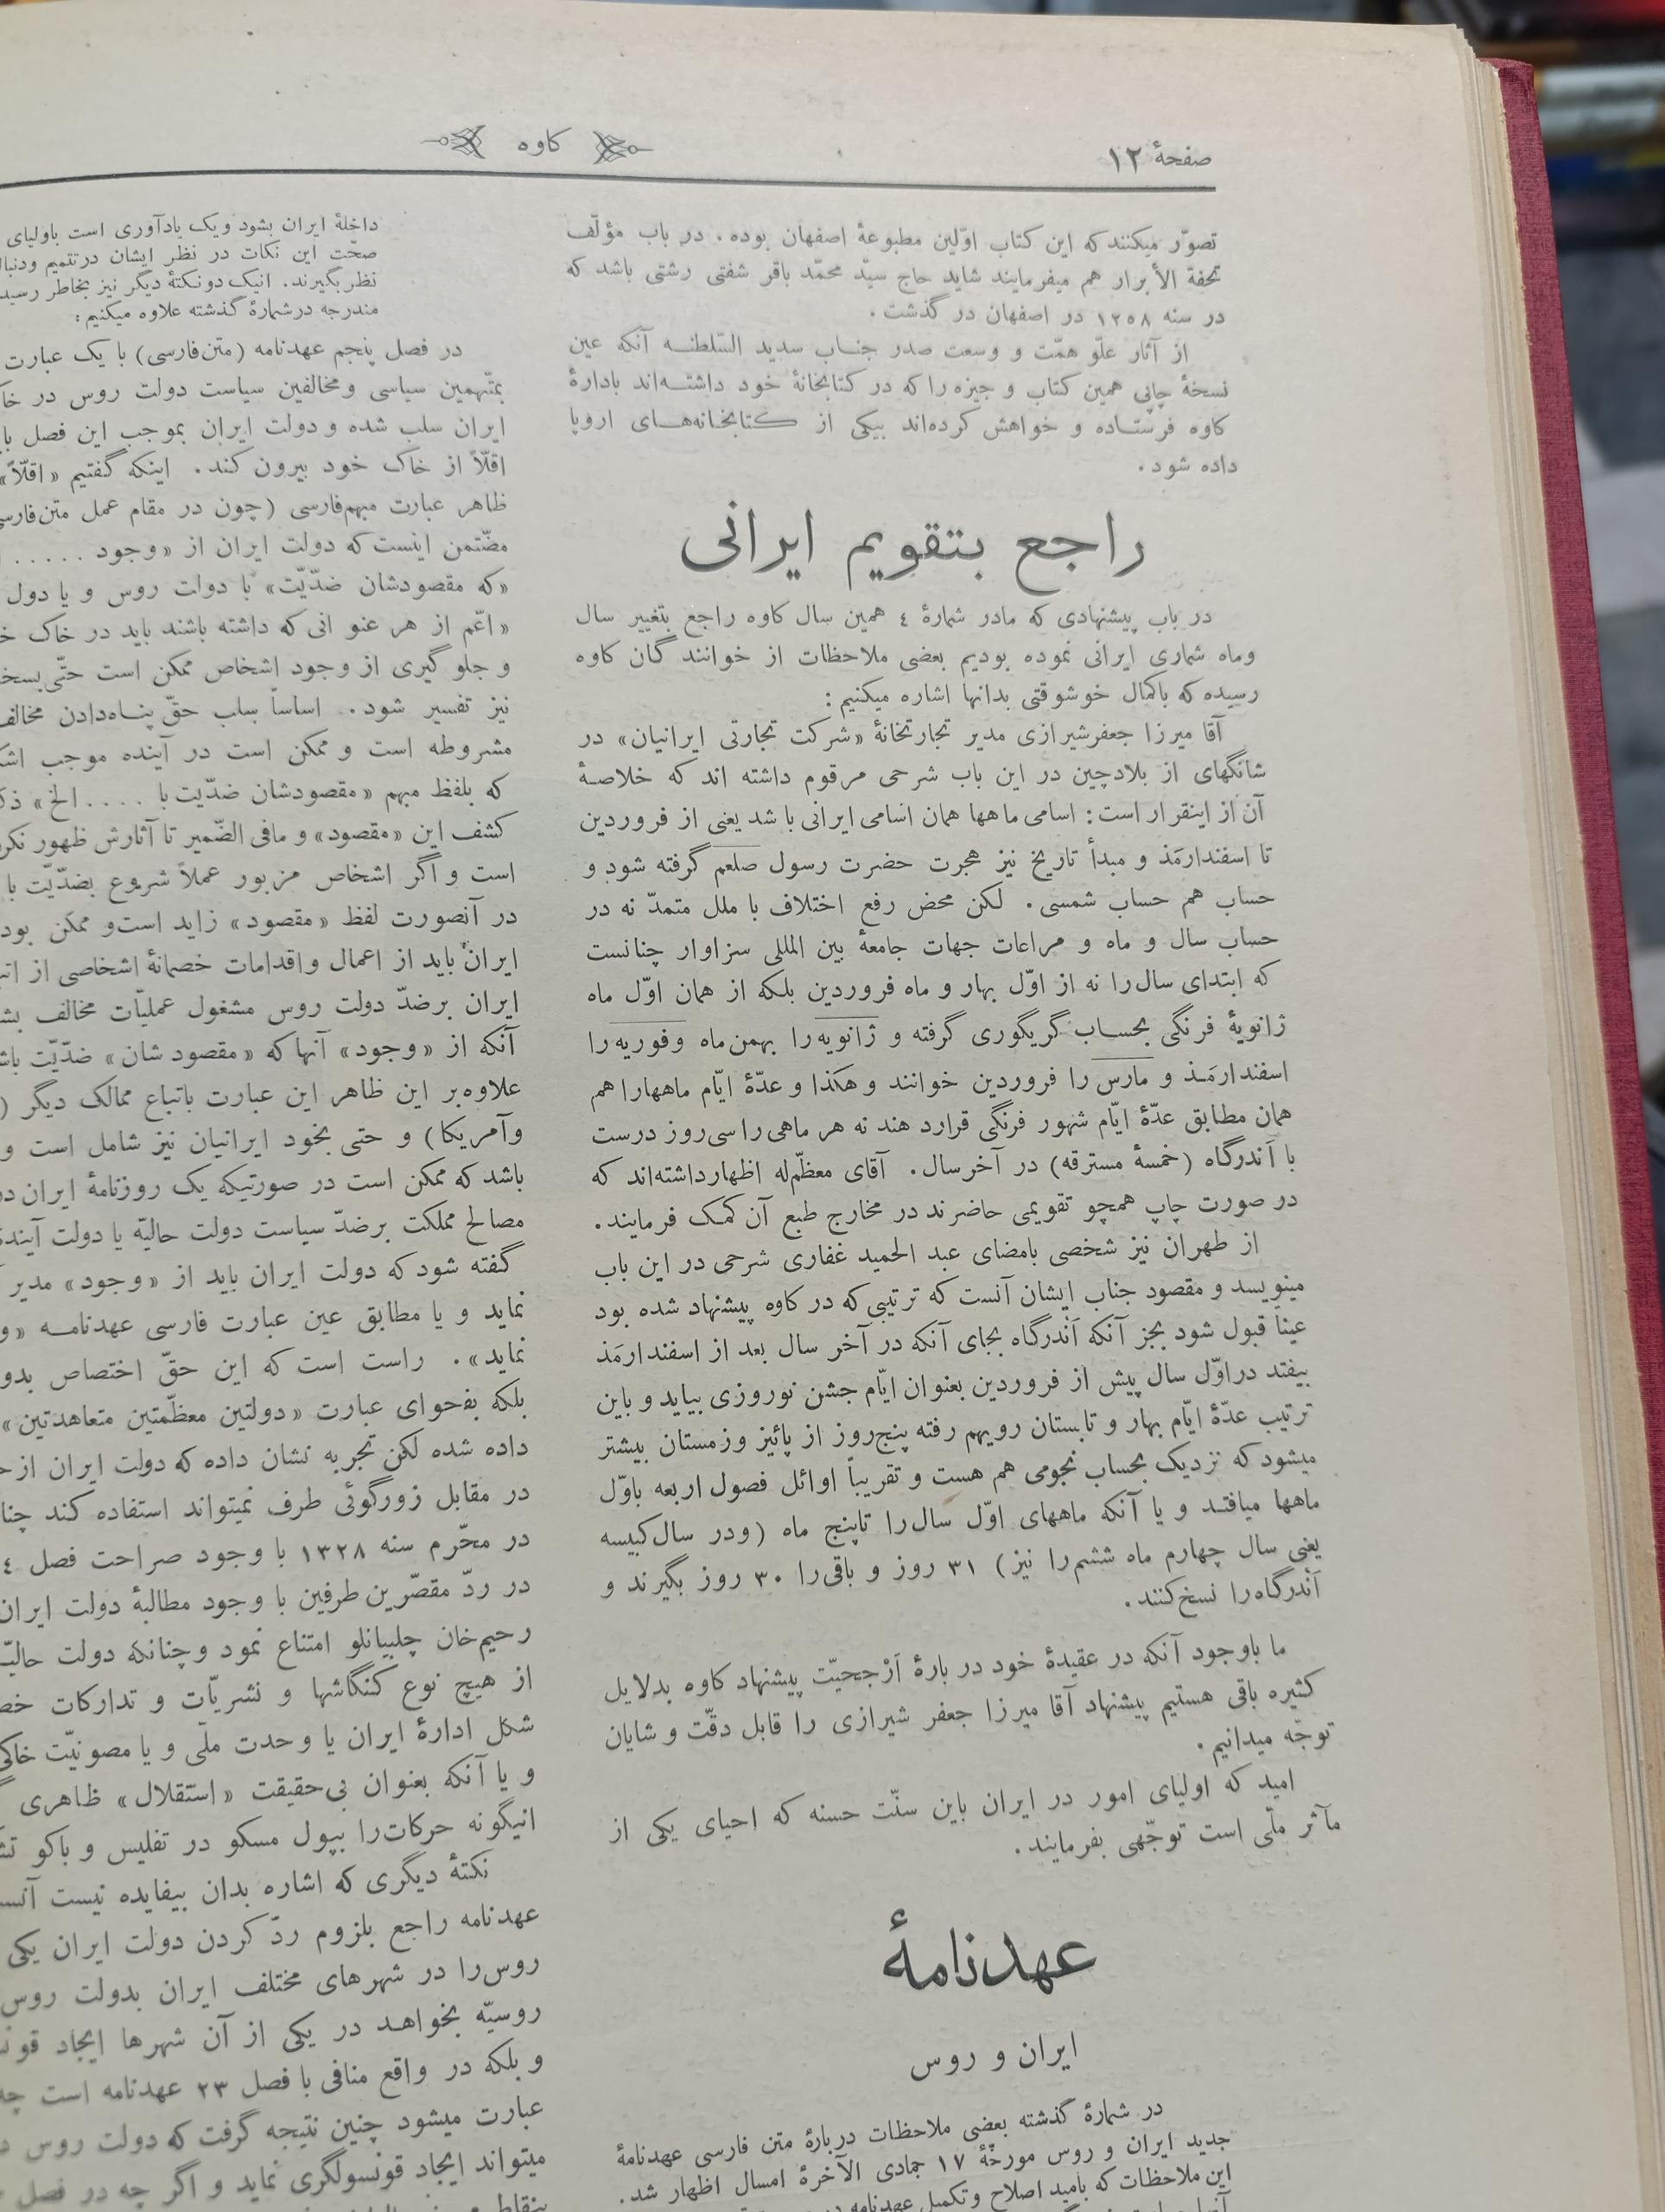 صفحهٔ ۱۲
کاوه
تصوّر میکنند که این کتاب اوّلین مطبوعهٔ اصفهان بوده. در باب مؤلّف
تحفة الأبرار هم میفرمایند شاید حاج سیّد محمّد باقر شفتی رشتی باشد که
در سنه ۱۲۵۸ در اصفهان در گذشت.
از آثار علّو همّت و وسعت صدر جناب سدید السّلطنه آنکه عین
نسخهٔ چاپی همین کتاب و جیزه را که در کتابخانهٔ خود داشته‌اند بادارهٔ
کاوه فرستاده و خواهش کرده‌اند بیکی از کتابخانه‌های اروپا
داده شود.
راجع بتقویم ایرانی
در باب پیشنهادی که مادر شمارهٔ ٤ همین سال کاوه راجع بتغییر سال
وماه شماری ایرانی نموده بودیم بعضی ملاحظات از خوانند گان کاوه
رسیده که باکمال خوشوقتی بدانها اشاره میکنیم:
آقا میرزا جعفر شیرازی مدیر تجارتخانهٔ «شرکت تجارتی ایرانیان» در
شانگهای از بلاد چین در این باب شرحی مرقوم داشته اند که خلاصهٔ
آن از اینقرار است: اسامی ماهها همان اسامی ایرانی با شد یعنی از فروردین
تا اسفندارمَذ و مبدأ تاریخ نیز هجرت حضرت رسول صلعم گرفته شود و
حساب هم حساب شمسی. لکن محض رفع اختلاف با ملل متمدّ نه در
حساب سال و ماه و مراعات جهات جامعهٔ بین المللی سزاوار چنانست
که ابتدای سال را نه از اوّل بهار و ماه فروردین بلکه از همان اوّل ماه
ژانویهٔ فرنگی بحساب گریگوری گرفته و ژانویه را بهمن‌ماه وفوریه را
اسفندارمَـذ و مارس را فروردین خوانند و هکذا و عدّهٔ ایّام ماههارا هم
همان مطابق عدّهٔ ایّام شهور فرنگی قرارد هند نه هر ماهی را سی روز درست
با اَندرگاه (خمسهٔ مسترقه) در آخر سال. آقای معظّم‌له اظهار داشته‌اند که
در صورت چاپ همچو تقویمی حاضرند در مخارج طبع آن کمک فرمایند.
از طهران نیز شخصی بامضای عبد الحمید غفاری شرحی در این باب
مینویسد و مقصود جناب ایشان آنست که ترتیبی که در کاوه پیشنهاد شده بود
عیناً قبول شود بجز آنکه اَندرگاه بجای آنکه در آخر سال بعد از اسفندارمَذ
بیفتد دراوّل سال پیش از فروردین بعنوان ایّام جشن نوروزی بیاید و باین
ترتیب عدّهٔ ایّام بهار و تابستان رویهم رفته پنج روز از پائیز وزمستان بیشتر
میشود که نزدیک بحساب نجومی هم هست و تقریباً اوائل فصول اربعه باوّل
ماهها میافتـد و یا آنکه ماههای اوّل سال را تاپنج ماه (ودر سال کبیسه
یعنی سال چهارم ماه ششم را نیز) ۳۱ روز و باقی‌را ۳۰ روز بگیرند و
اَندرگاه را نسخ کنند.
ما باوجود آنکه در عقیدهٔ خود در بارهٔ اَرْجحیّت پیشنهاد کاوه بدلایل
کثیره باقی هستیم پیشنهاد آقا میرزا جعفر شیرازی را قابل دقّت و شایان
توجّه میدانیم.
امید که اولیای امور در ایران باین سنّت حسنه که احیای یکی از
مآثر ملّی است توجّهی بفرمایند.
عهدنامهٔ
ایران و روس
در شمارهٔ گذشته بعضی ملاحظات دربارهٔ متن فارسی عهدنامهٔ
جدید ایران و روس مورخّهٔ ۱۷ جمادی الآخرهٔ امسال اظهار شد.
این ملاحظات که بامید اصلاح و تکمیل عهدنامه
داخلهٔ ایران بشود ویک یادآوری است باولیای
صحّت این نکات در نظر ایشان درتتمیم ودنبا
نظر بگیرند. اینک دونکتهٔ دیگر نیز بخاطر رسید
مندرجه درشمارهٔ گذشته علاوه میکنیم:
در فصل پنجم عهدنامه (متن فارسی) با یک عبارت
بمتّهمین سیاسی ومخالفین سیاست دولت روس در خا
ایران سلب شده و دولت ایران بموجب این فصل با
اقلّاً از خاک خود بیرون کند. اینکه گفتیم «اقلّاً»
ظاهر عبارت مبهم‌فارسی (چون در مقام عمل متن فارسی
مضّتمن اینست که دولت ایران از «وجود . . . . . .
«که مقصودشان ضدّیّت» با دولت روس و یا دول
«اعّم از هر عنو انی که داشته باشند باید در خاک خ
و جلو گیری از وجود اشخاص ممکن است حتّی بسخ
نیز تفسیر شود. اساساً سلب حقّ پناه‌دادن مخالف
مشروطه است و ممکن است در آینده موجب اشک
که بلفظ مبهم «مقصودشان ضدّیّت با . . . . الخ» ذک
کشف این «مقصود» و مافی الضّمیر تا آثارش ظهور نکر
است و اگر اشخاص مزبور عملاً شروع بضدّیّت با
در آنصورت لفظ «مقصود» زاید است‌و ممکن بود
ایران باید از اعمال واقدامات خصمانهٔ اشخاصی از اتب
ایران برضدّ دولت روس مشغول عملیّات مخالف بش
آنکه از «وجود» آنها که «مقصود شان» ضدّیّت باش
علاوه‌بر این ظاهر این عبارت باتباع ممالک دیگر (
وآمریکا) و حتی بخود ایرانیان نیز شامل است و
باشد که ممکن است در صورتیکه یک روزنامهٔ ایران در
مصالح مملکت برضدّ سیاست دولت حالیّه یا دولت آیندهٔ
گفته شود که دولت ایران باید از «وجود» مدیر
نماید و یا مطابق عین عبارت فارسی عهدنامـه «و
نماید». راست است که این حقّ اختصاص بدو
بلکه بفحوای عبارت «دولتین معظّمتین متعاهدتین»
داده شده لکن تجربه نشان داده که دولت ایران از ح
در مقابل زورگوئی طرف نمیتواند استفاده کند چنا
در محرّم سنه ۱۳۲۸ با وجود صراحت فصل ٤
در ردّ مقصّرین طرفین با وجود مطالبهٔ دولت ایران
رحیم‌خان چلبیانلو امتناع نمود وچنانکه دولت حالیّ
از هیچ نوع کنگاشها و نشریّات و تدارکات خص
شکل ادارهٔ ایران یا وحدت ملّی و یا مصونیّت خاک
و یا آنکه بعنوان بی‌حقیقت «استقلال» ظاهری
انیگونه حرکات‌را بپول مسکو در تفلیس و باکو تش
نکتهٔ دیگری که اشاره بدان بیفایده نیست آنس
عهدنامه راجع بلزوم ردّ کردن دولت ایران یکی
روس‌را در شهرهای مختلف ایران بدولت روس
روسیّه بخواهـد در یکی از آن شهرها ایجاد قونـ
و بلکه در واقع منافی با فصل ۲۳ عهدنامه است چه
عبارت میشود چنین نتیجه گرفت که دولت روس د
میتواند ایجاد قونسولگری نماید و اگر چه در فصل